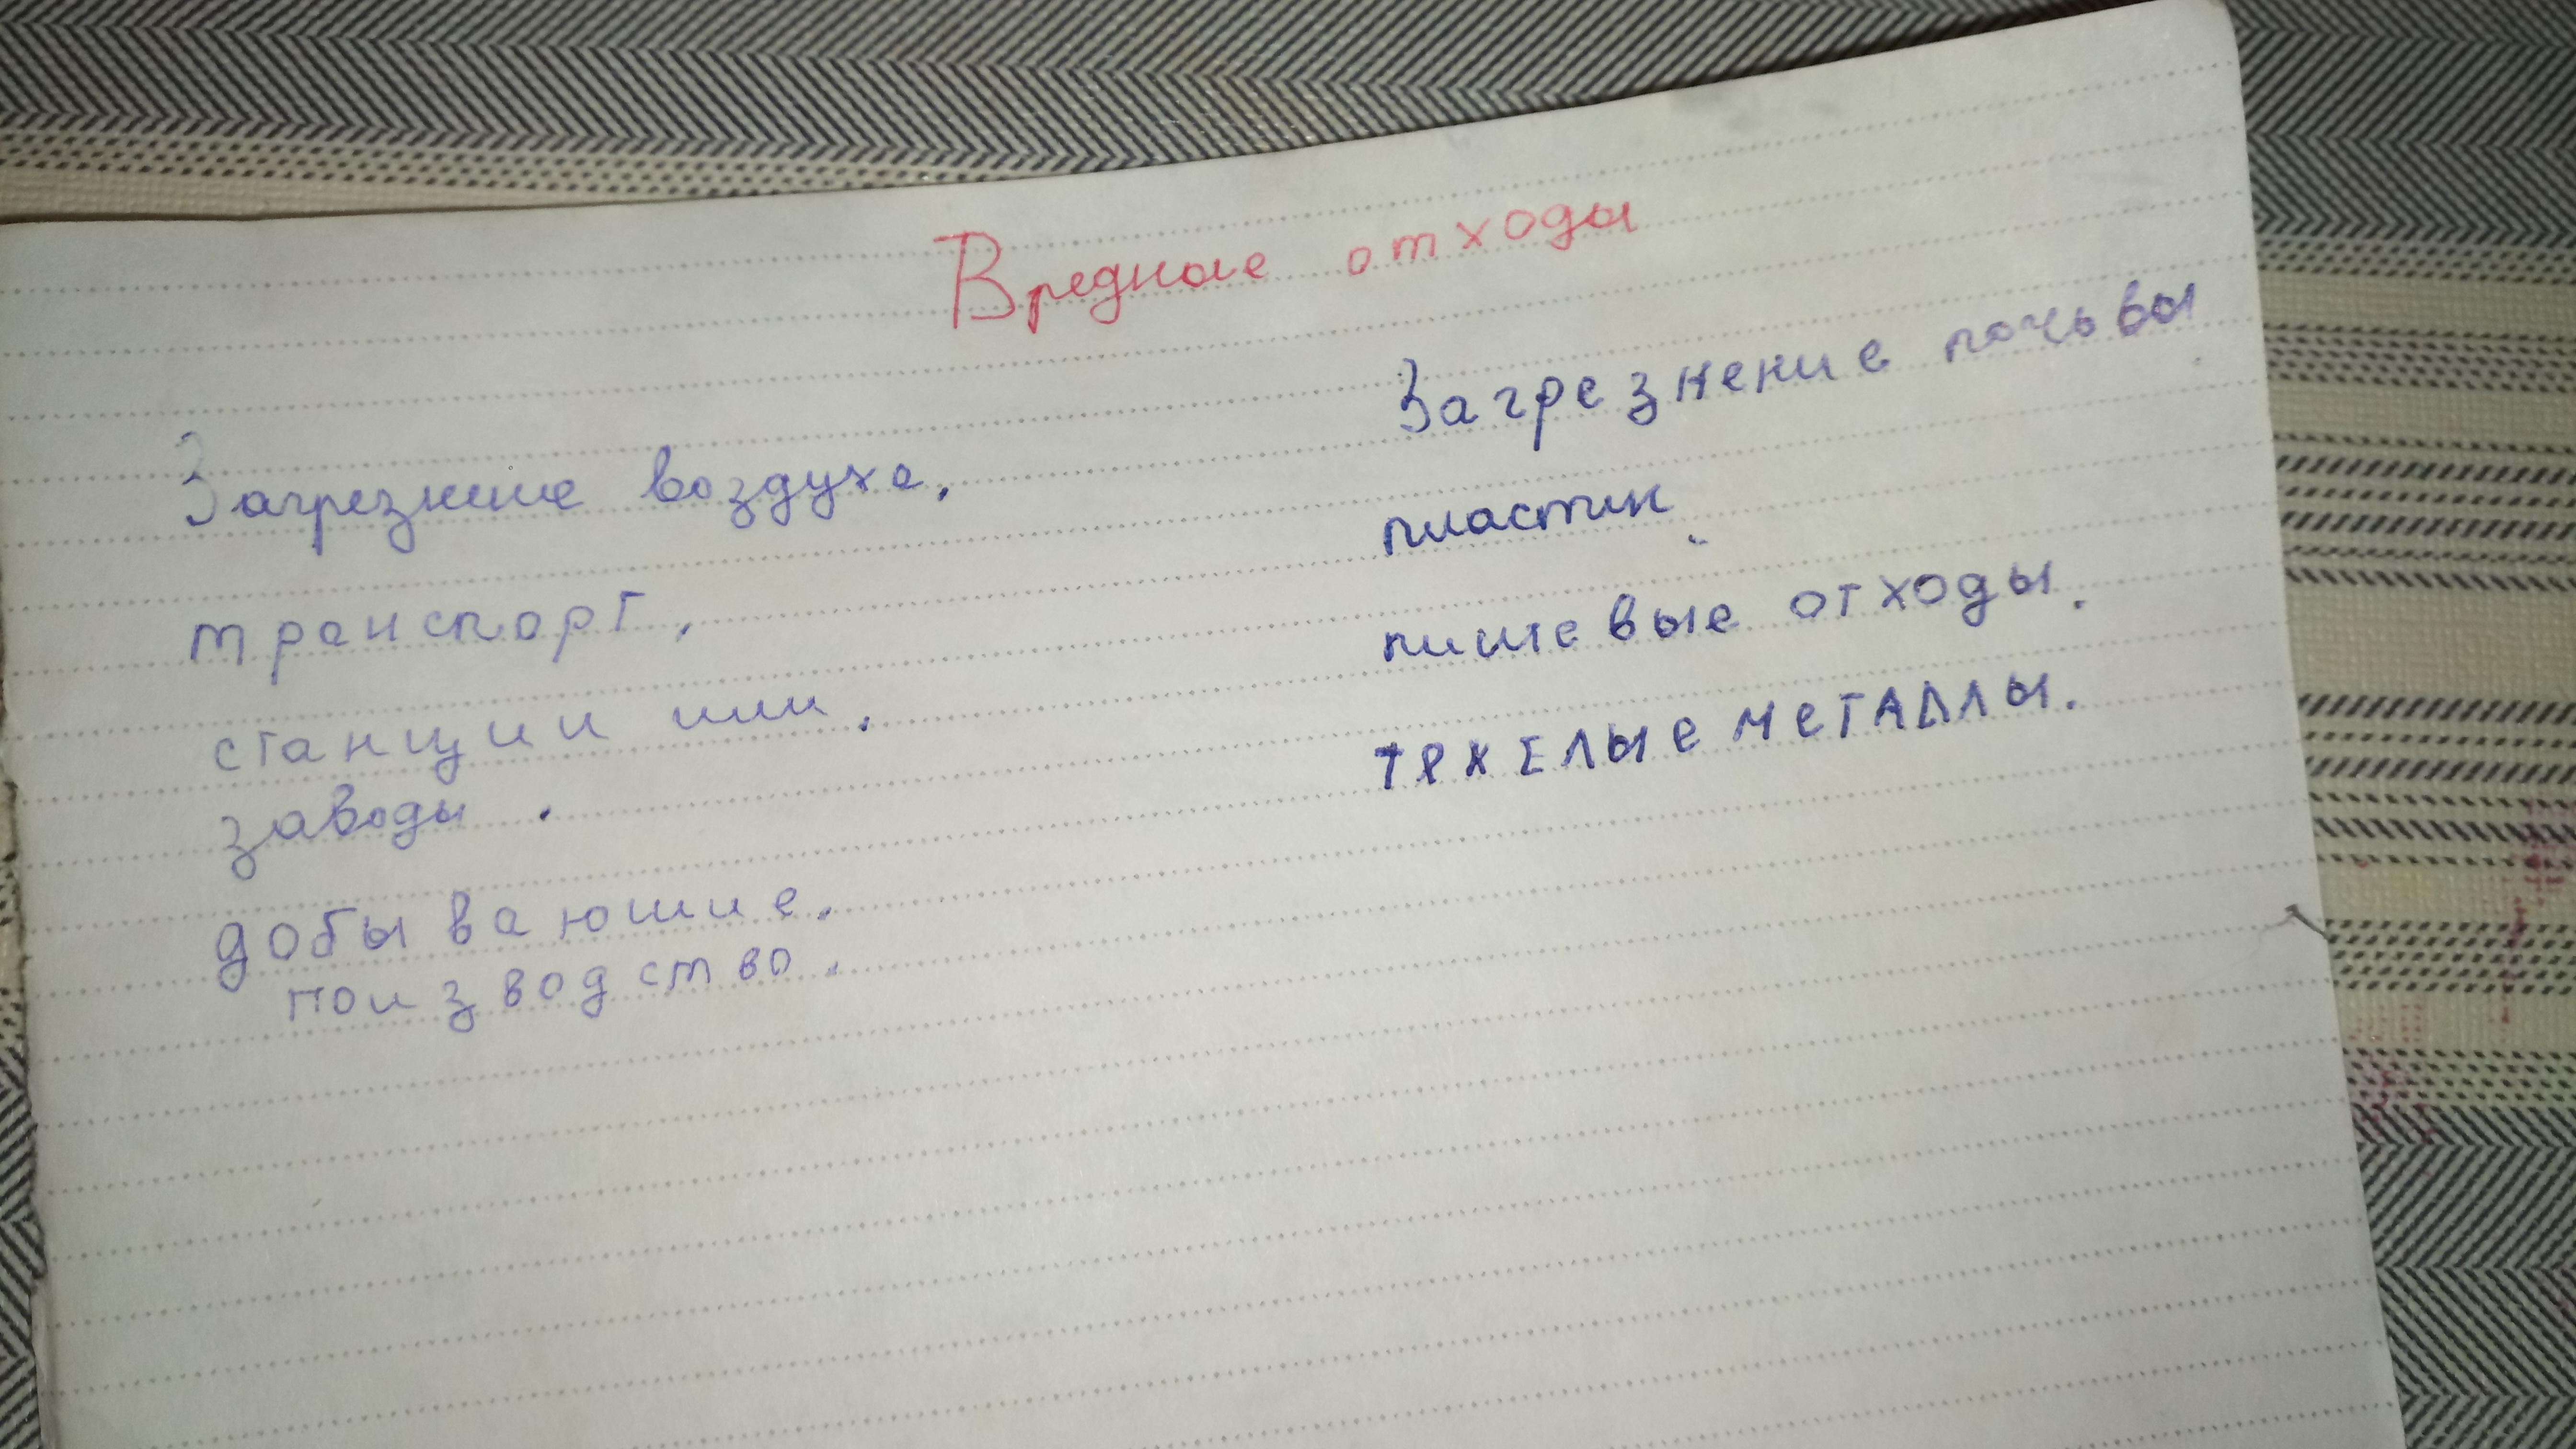 Вредные отходы
Загрезнение воздуха.
транспорт,
станции или.
заводы.
добываюшие.
поизводство.
Загрезнение почьвы
пластик
пишевые отходы.
тяжелые металлы.